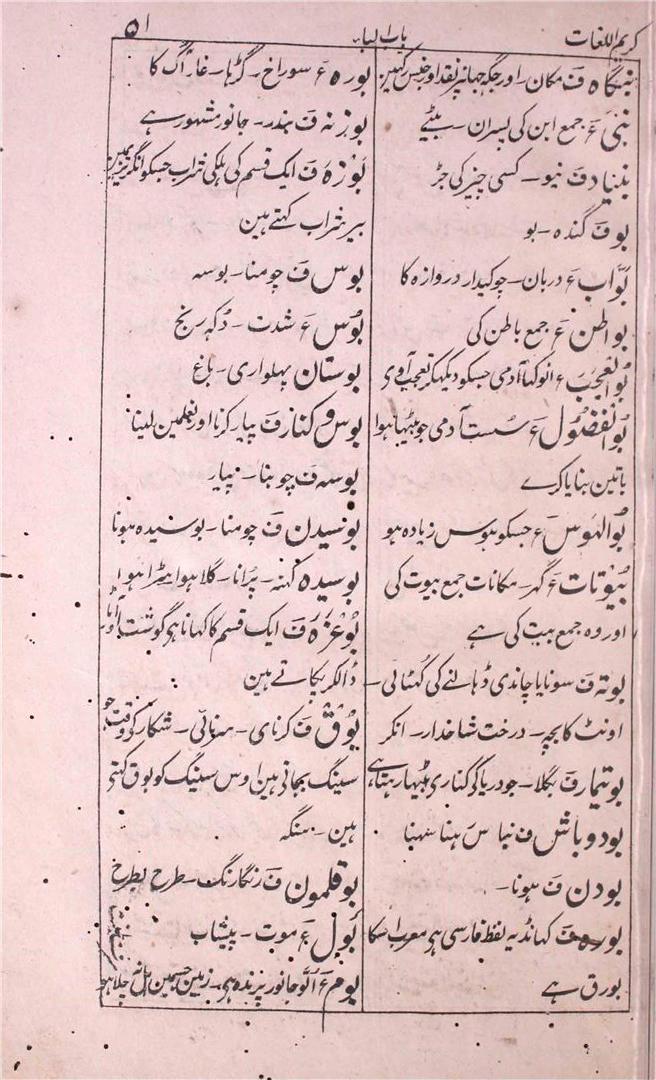 کریم اللغات
باب البا۔
۵۱
بنگاہ ف مکان۔ اور جگہ جہانپر نقد اور جنس رکہین
بنی ع جمع ابن کی پسران۔ بیٹے
بنیاد ف نیو۔ کسی چیز کی جڑ
بو ف گندہ۔ بو
بوّاب ع دربان۔ چوکیدار دروازہ کا
بواطن ع جمع باطن کی
بُوالعجب ع انوکہا آدمی جسکو دیکہکر تعجب آوی
بُوالفضُول ع سست آدمی جو بیٹہا ہوا
باتین بنایا کرے
بُوالہوس ع جسکو ہوس زیادہ ہو
بُیُوتات ع گہر۔ مکانات جمع بیوت کی
اور وہ جمع بیت کی ہے
بوتہ ف سونا یا چاندی ڈہالنے کی گہٹالی۔
اونٹ کا بچہ۔ درخت شاخدار۔
بوتیمار ف بگلا۔ جو دریا کی کناری بیٹہا رہتا ہے
بود و باش ف رہنا سہنا
بودن ف ہونا۔
بورہ ف کہانڈ یہ لفظ فارسی ہی معرب اسکا
بورق ہے
بورہ ع سوراخ۔ گڑہا۔ غار آگ کا
بوزنہ ف بندر۔ جانور مشہور ہے
بوزہ ف ایک قسم کی ہلکی شراب جسکو انگریزیمین
بیر شراب کہتے ہین
بوس ف چومنا۔ بوسہ
بُوس ع شدت۔ دُکہ رنج
بوستان پہلواری۔ باغ
بوس و کنار ف پیار کرنا اور بغلمین لینا
بوسہ ف چوبنا۔ پیار
بوسیدن ف چومنا۔ بوسیدہ ہونا
بوسیدہ کہنہ۔ پرانا۔ گلا ہوا سڑا ہوا
بُوغزہ ف ایک قسم کا کہانا ہی گوشت اور آٹا
ڈالکر پکاتے ہین
بُوق ف کرنای۔ سرنائی۔ شکار کی وقت جو
سینگ بجاتی ہین اوس سینگ کو بوق کہتی
ہین۔ سنگہ
بوقلمون ف رنگارنگ۔ طرح بطرح
بَول ع موت۔ پیشاب
بوم ع اُلّو جانور پرندہ ہی۔ زمین جسمین ہل نہ چلا ہو